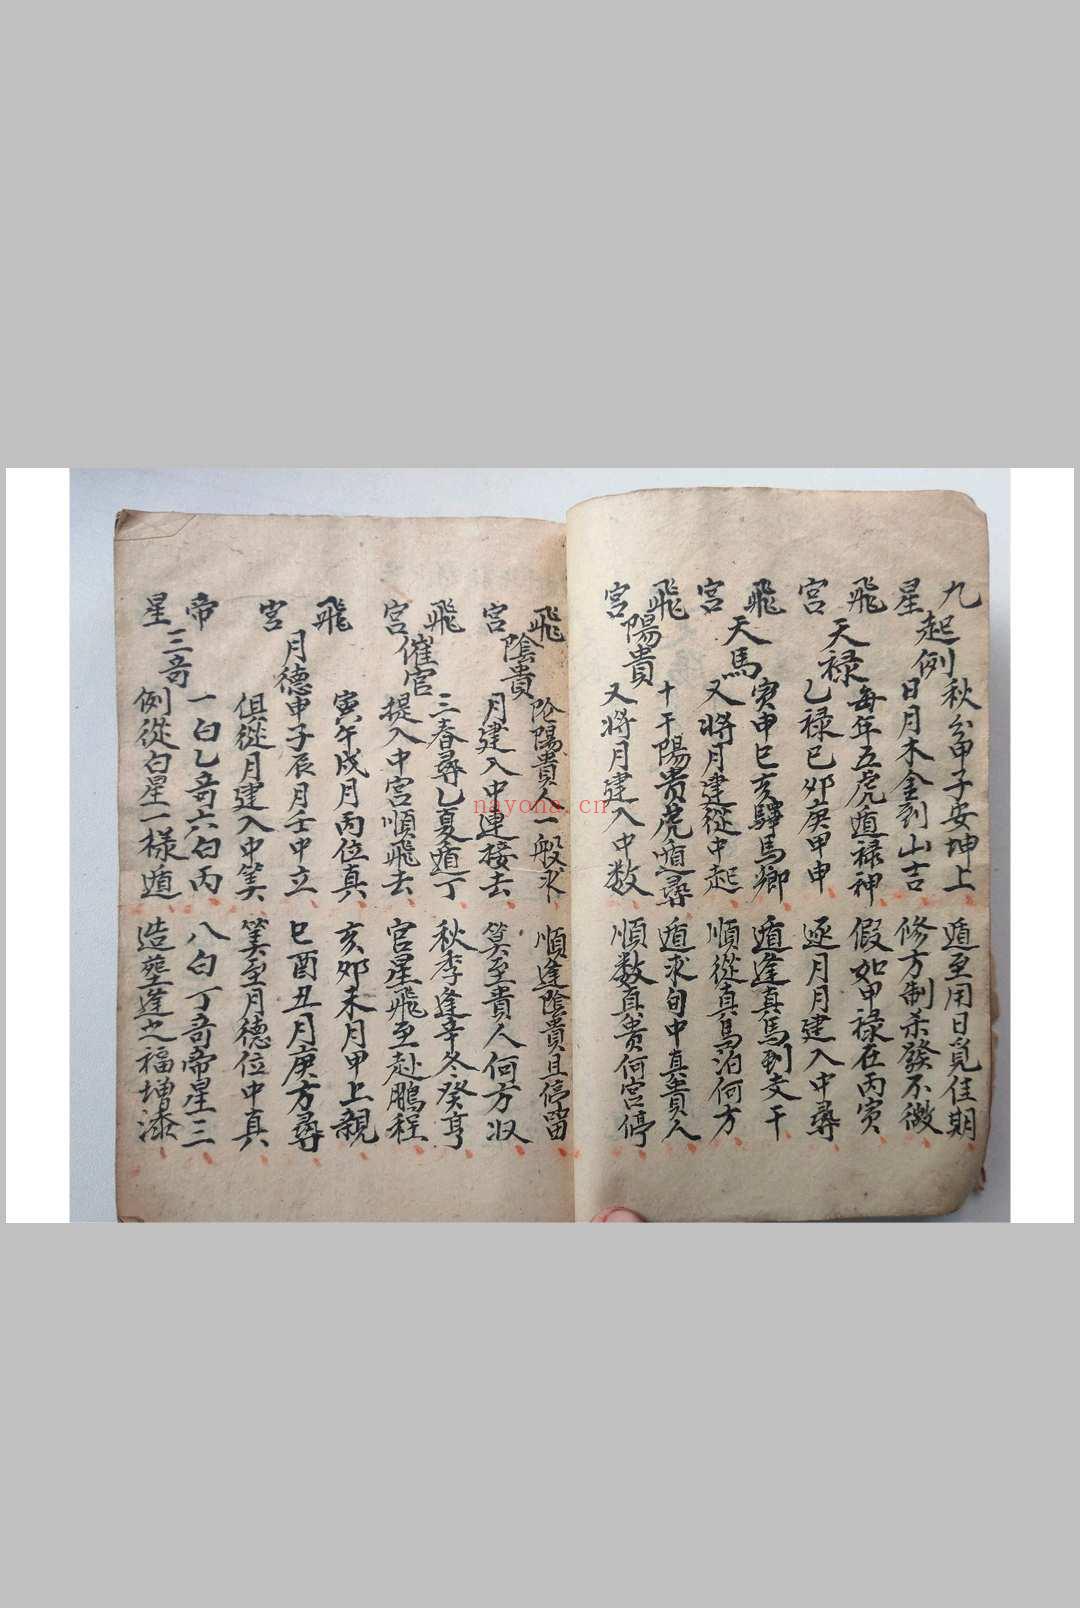 九星起例
秋分甲子安坤上 遁至用日覓佳期
日月木金到山吉 修方制杀發不微
飛宮天禄
每年五虎遁禄神 假如甲禄在丙寅
乙禄己卯庚甲申 逐月月建入中尋
飛宮天馬
寅申巳亥驛馬鄉 遁逢真馬到支干
又將月建從中起 順從真馬泊何方
飛宮陽貴
十干陽贵虎遁尋 遁求旬中真貴人
又將月建入中数 順数真贵何宮停
飛宮陰貴
陰陽貴人一般求 順逢陰貴且停留
月建入中連接去 筭至貴人何方収
飛宮催官
三春尋乙夏遁丁 秋季逢辛冬癸亨
提入中宮順飛去 官星飛至赴鵬程
飛宮月德
寅午戌月丙位真 亥卯未月甲上親
申子辰月壬中立 巳酉丑月庚方尋
但從月建入中筭 筭至月德位中真
帝星三奇
一白乙奇六白丙 八白丁奇帝星三
例從白星一樣遁 造塟逢之福增添
nayona.cn